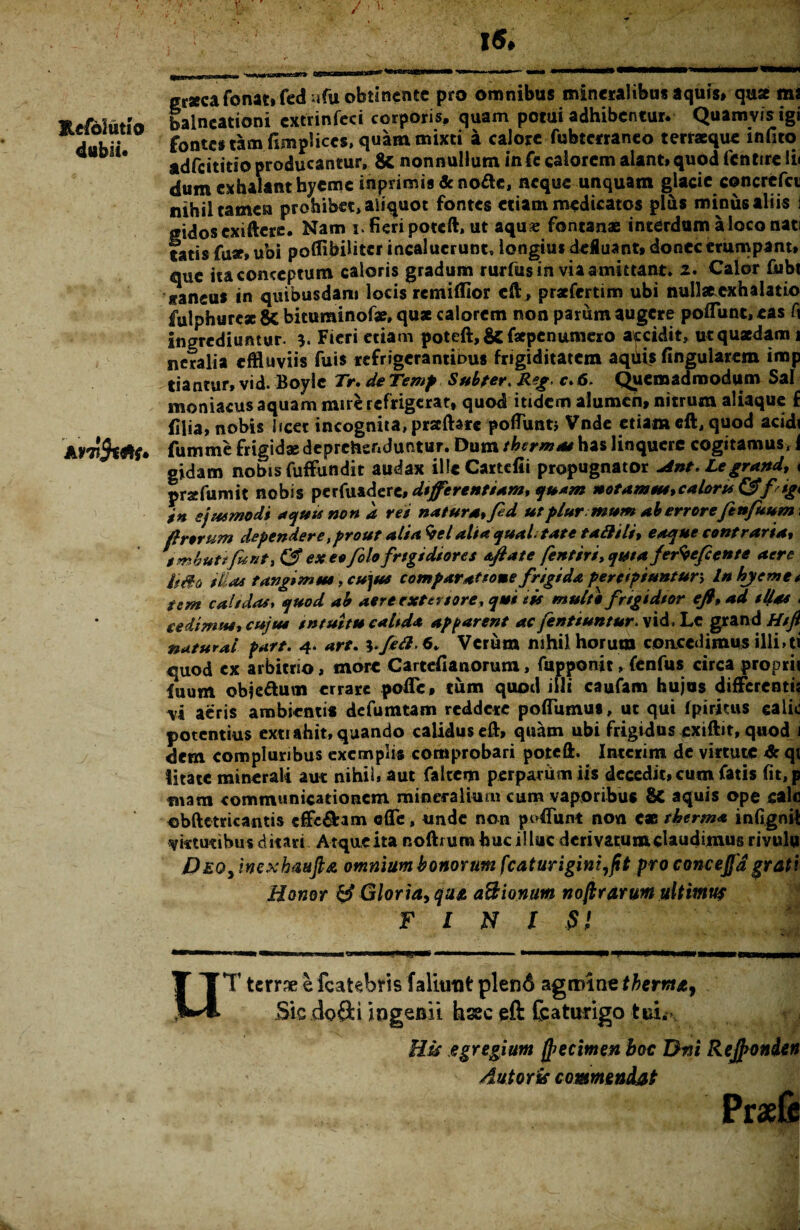 16.
græca sonat, sed usu obtinente pro omnibus mineralibus aquis, quæ
Resolutio
dubii.
balneationi extrinseci corporis, quam potui adhibentur. Quamvis igi
fontes tàm simplices, quàm mixti à calore subterraneo terræque insito
adscititio producantur, & nonnullum in se calorem alant, quod sentire
dum exhalant hyeme inprimis & nocte, neque unquam glacie concresc
nihil tamen prohibet, aliquot fontes etiam medicatos plùs minùs aliis
gidos existere. Nam 1. fieri potest, ut aquæ fontanæ interdum à loco nat
tatis suæ, ubi possibiliter incaluerunt, longius defluant, donec erumpant,
que ita conceptum caloris gradum rursus in via amittant. 2. Calor subt
raneus in quibusdam locis remissior est, præsertim ubi nullæ exhalatio
sulphureæ & bituminosæ, quæ calorem non parùm augere possunt, eas
ingrediuntur. 3. Fieri etiam potest, & sæpenumero accidit, ut quædam
neralia effluviis suis refrigerantibus frigiditatem aquis singularem imp
tiantur, vid. Boyle Tr. de Temp Subter. Reg. c. 6. Quemadmodum Sal
moniacus aquam mirè refrigerat, quod itidem alumen, nitrum aliaque
filia, nobis licet incognita, præstare possunt; Vnde etiam est, quod acid
Ἀντίθεσις.
summè frigidæ deprehenduntur. Dum thermas has linquere cogitamus,
gidam nobis suffundit audax ille Cartesii propugnator Ant. Le grand,
præsumit nobis persuadere, differentiam, quam notamus, caloris & frig
in ejusmodi aquis non à rei natura, sed ut plurimum ab errore sensuum
strorum dependere, prout alia vel alia qualitate tactili, eaque contraria,
imbuti sunt, & ex eo solo frigidiores æstate sentiri, quia fervescente aere
licto illas tangimus, cujus comparatione frigida percipiuntur; In hyeme
tem calidas, quod ab aere exteriore, qui iis multò frigidior est, ad illas
cedimus, cujus intuitu calida apparent ac sentiuntur. vid. Le grand Hist
natural part. 4. art. 3. sect. 6. Verùm nihil horum concedimus illi,
quod ex arbitrio, more Cartesianorum, supponit, sensus circa propri
suum objectum errare posse, tùm quod illi causam hujus differenti
vi aëris ambientis desumtam reddere possumus, ut qui spiritus cali
potentius extrahit, quando calidus est, quàm ubi frigidus existit, quod
dem compluribus exemplis comprobari potest. Interim de virtute & q
litate minerali aut nihil, aut saltem perparùm iis decedit, cum satis sit,
mam communicationem mineralium cum vaporibus & aquis ope calo
obstetricantis effectam esse, unde non possunt non eæ thermæ insigni
virtutibus ditari. Atque ita nostrum huc illuc derivatum claudimus rivulu
DEO, inexhaustæ omnium bonorum scaturigini, sit pro concessâ grati
Honor & Gloria, quæ actionum nostrarum ultimus
FINIS!
UT terræ è scatebris saliunt plenô agmine thermæ,
Sic docti ingenii hæc est scaturigo tui.
His egregium specimen hoc Dni Responden
Autoris commendat
Præse